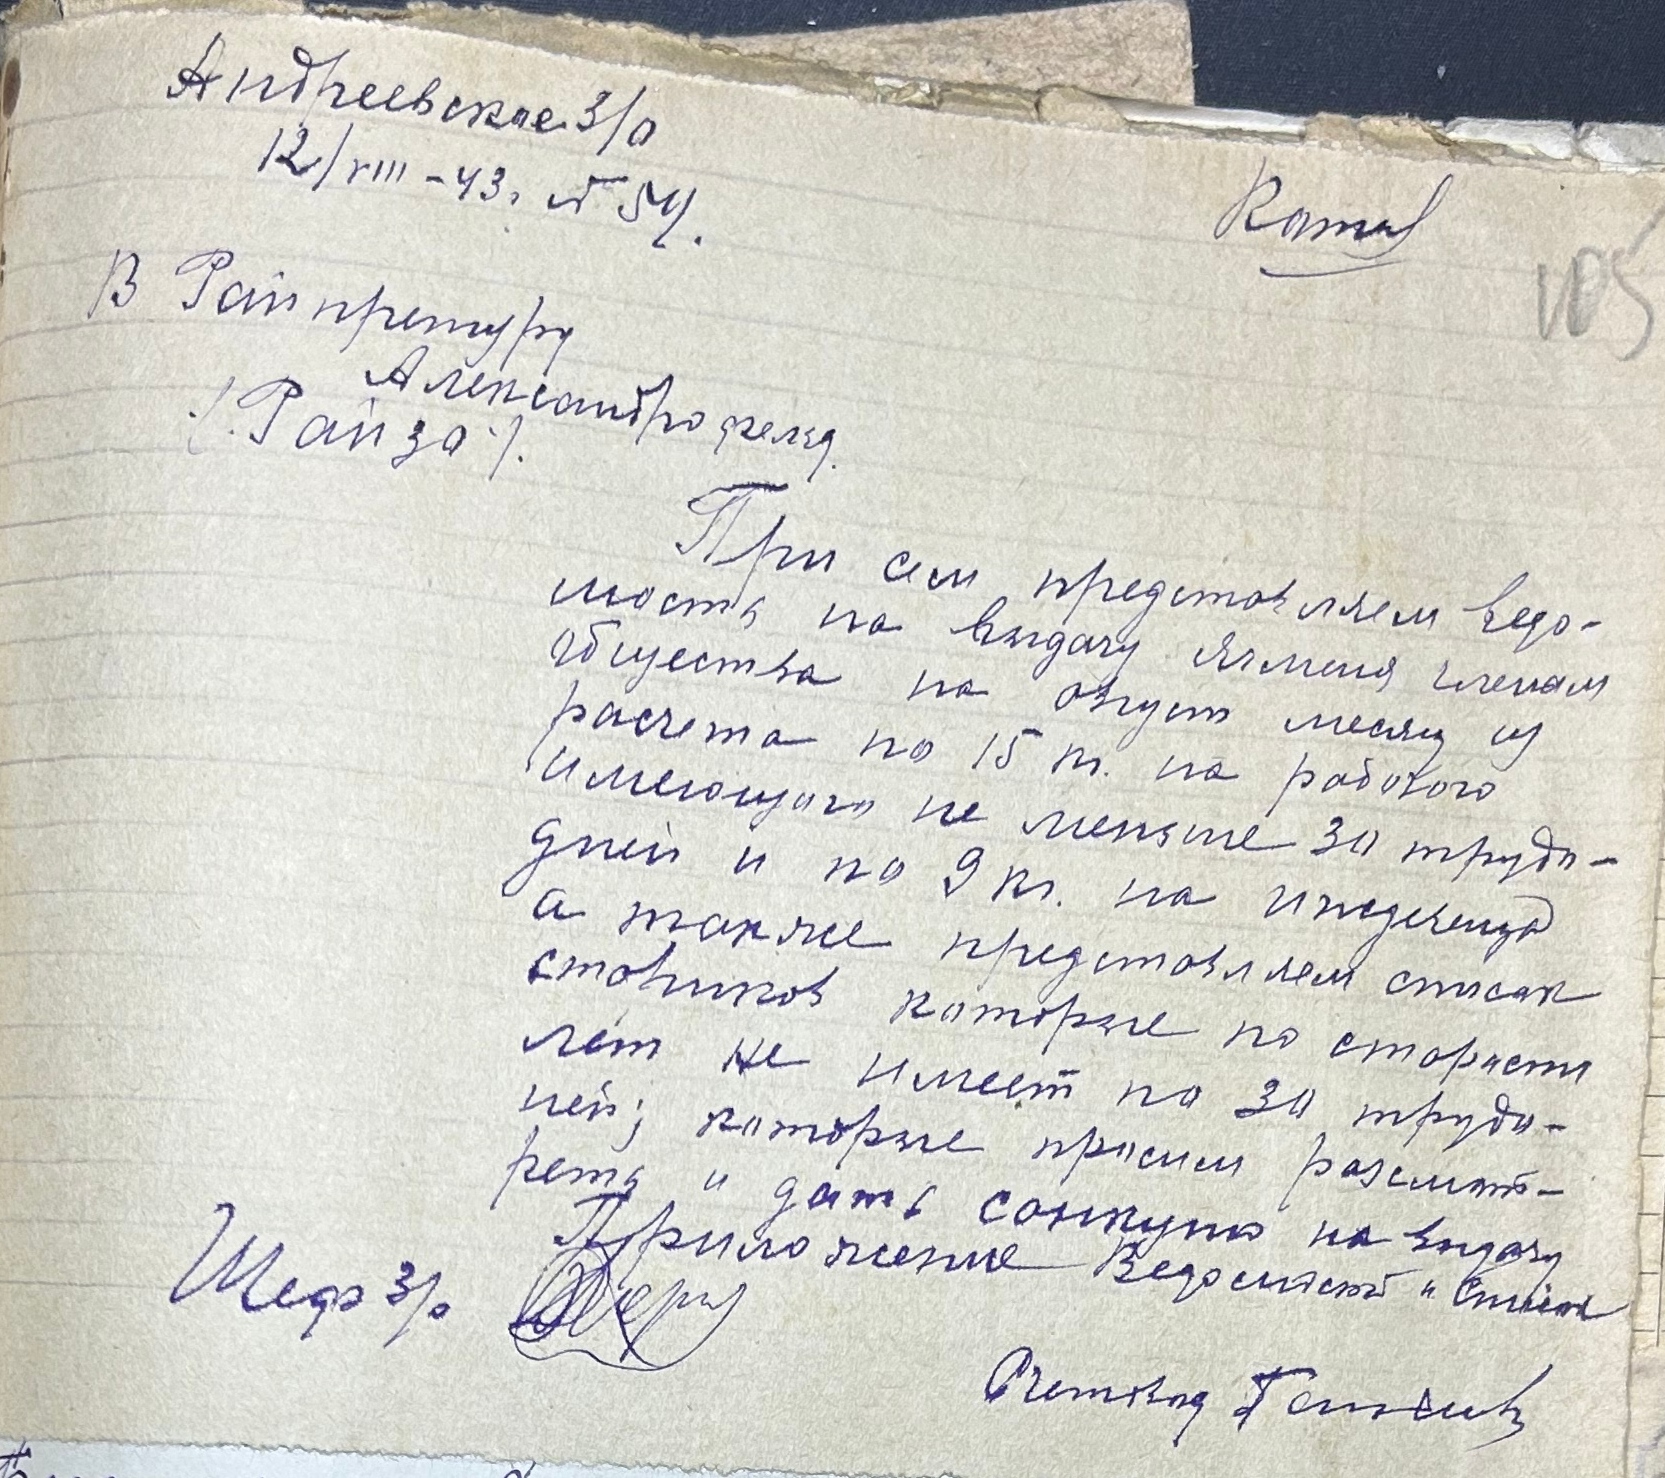 Андреевское З/о
12/VIII-43г. № 54.
105
В Райпретуру
Александрофельд.
/. Райзо ./.
При сем представляем ведо-
мость на выдачу ячменя членам
общества на август месяц из
расчета по 15 кг. на рабочого
имеющого не меньше 30 трудо-
дней и по 9 кг. на иждевенца
а также представляем список
стариков которые по старости
лет не имеет по 30 трудо-
ней; которые просим розсмот-
реть и дать санкцию на выдачу
Приложение Ведомость и список
Шеф З/о
Счетовод